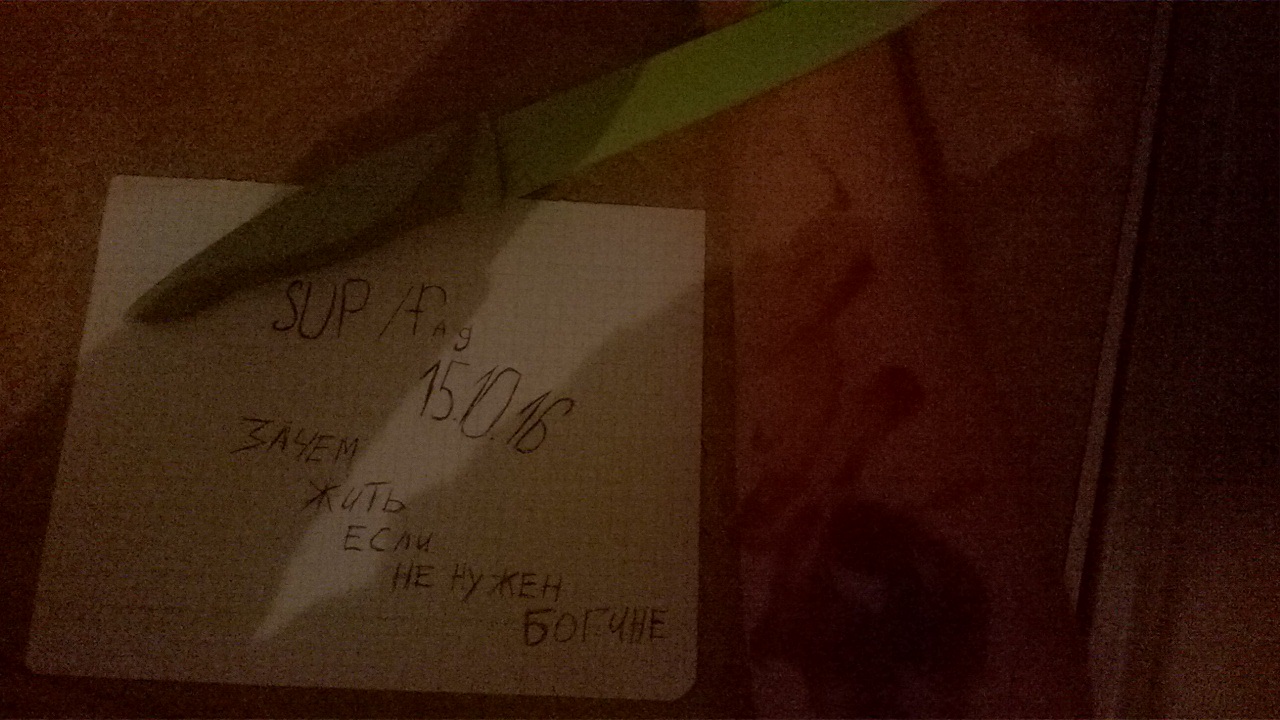 SUP /fAg
15.10.16
ЗАЧЕМ
ЖИТЬ
ЕСЛИ
НЕ НУЖЕН
БОГИНЕ